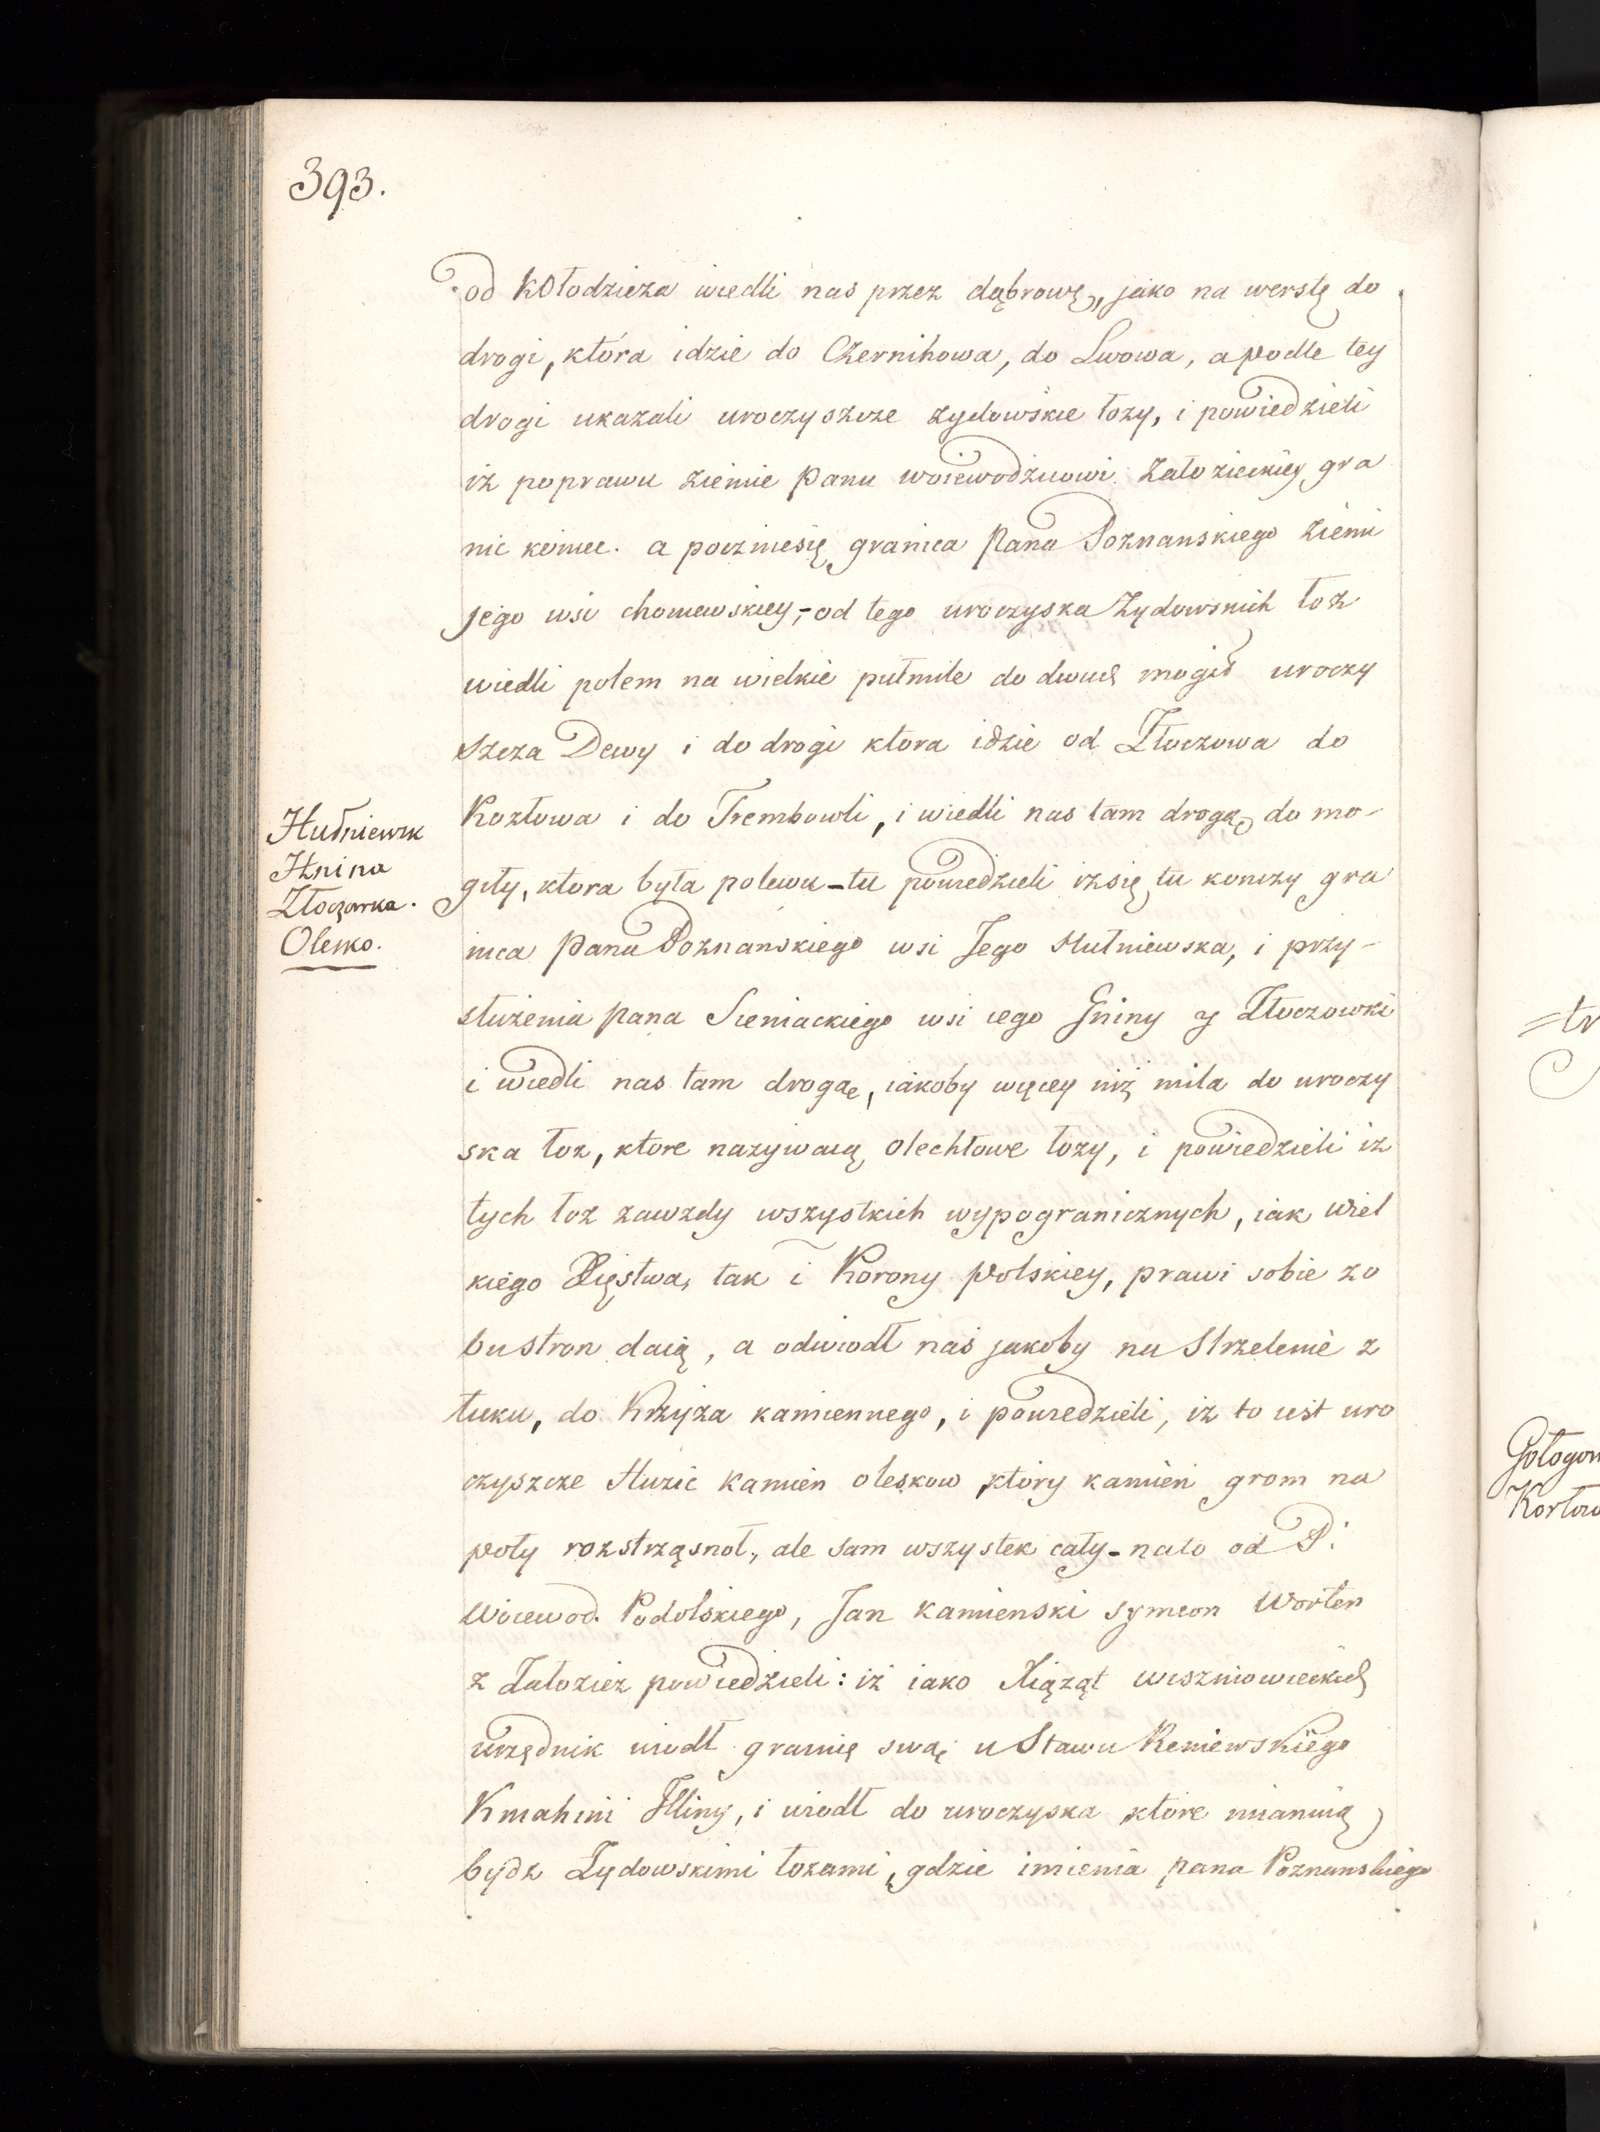 393.
od Kołodzieza wiedli nas przez dąbrowę, jako na werstę do
drogi, która idzie do Czernihowa, do Lwowa, a podle tey
drogi ukazali uroczyszcze żydowskie łozy, i powiedzieli
iż poprawu ziemie Panu woiewodzuowi Załozieckiey gra
nic koniec. a poczniesię granica Pana Poznanskiego ziemi
jego wsi chomewskiey,- od tego uroczyska Żydowsnich łoz
wiedli polem na wielkie pułmile do dwuch mogił uroczy
szcza Dewy i do drogi ktora idzie od Złoczowa do
Kozłowa i do Trembowli, i wiedli nas tam drogą, do mo-
giły, ktora była polewu - tu powiedzieli iżsię tu konczy gra
nica Pana Poznańskiego wsi Jego Hutniewska, i przy-
służenia pana Sieniackiego wsi iego Gniny y Złoczowki
i wiedli nas tam drogąę, iakoby więcey niż mila do uroczy
ska łoz, ktore nazywaią olechłowe łozy, i powiedzieli iż
tych łoz zawzdy wszystkich wypogranicznych, iak wiel
kiego Xięstwa, tak i Korony Polskiey, prawi sobie zo
bustron daią, a odwiodł nas jakoby na Strzelenie z
łuku, do Krzyża kamiennego, i powiedzieli, iż to iest uro
czyszcze Huzic Kamien oleskow, który kamień grom na
poły rozstrząsnoł, ale sam wszystek cały - nato od P:
Woiewod. Podolskiego, Jan Kamienski symeon Worten
z Załoziez powiedzieli: iż iako Xiąząt wiszniowieckich
urzędnik wiodł granię swą u Stawu Reniewskiego
Kmahini Hliny, i wiodł do uroczyska ktore mianuią
bydz Żydowskimi łozami, gdzie imienia pana Poznanskiego
Hutniewsk
Hnina
Złoczowka.
Olesko.